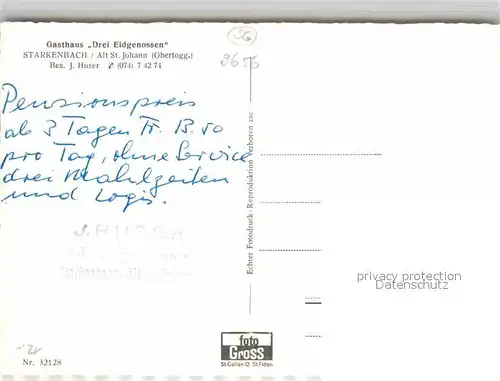 Gasthaus „Drei Eidgenossen"
STARKENBACH / Alt St. Johann (Obertogg.)
Bes. J. Huser ✆ (074) 7 42 74
SG
9656
Pensionspreis
ab 3 Tagen Fr. 13.50
pro Tag, ohne Service
drei Mahlzeiten
und Logis.
J. HUSER
Echter Fotodruck - Reproduktion verboten
privacy protection
Datenschutz
foto
Gross
St.Gallen O St.Fiden
12.-
Nr. 32128